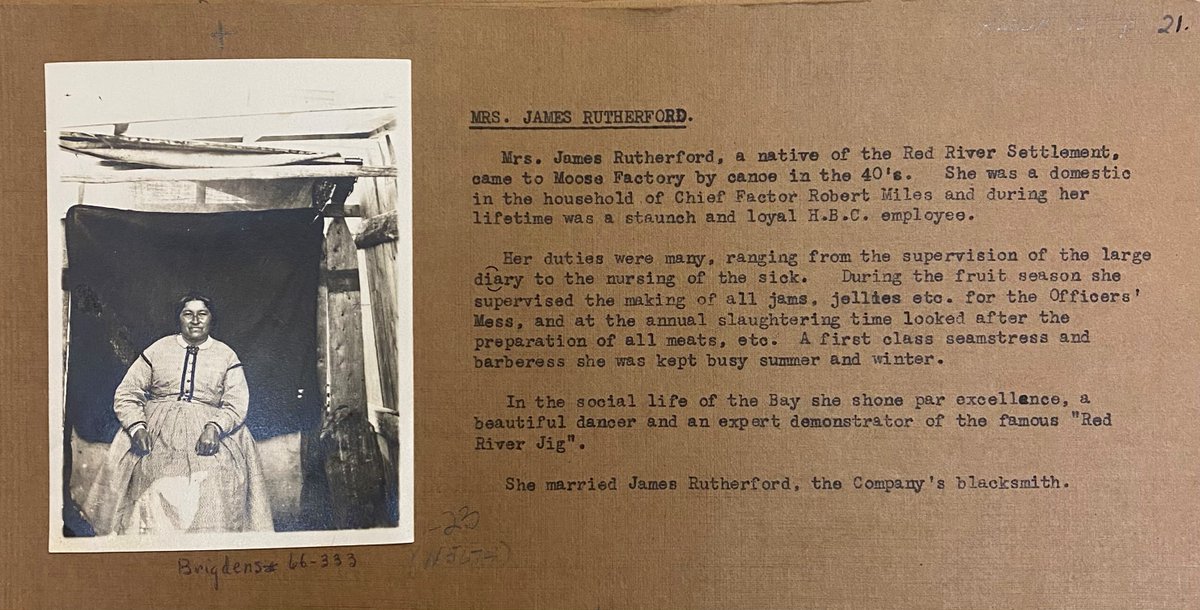 21.
MRS. JAMES RUTHERFORD.
Mrs. James Rutherford, a native of the Red River Settlement,
came to Moose Factory by canoe in the 40's. She was a domestic
in the household of Chief Factor Robert Miles and during her
lifetime was a staunch and loyal H.B.C. employee.
Her duties were many, ranging from the supervision of the large
diary to the nursing of the sick. During the fruit season she
supervised the making of all jams, jellies etc. for the Officers'
Mess, and at the annual slaughtering time looked after the
preparation of all meats, etc. A first class seamstress and
barberess she was kept busy summer and winter.
In the social life of the Bay she shone par excellence, a
beautiful dancer and an expert demonstrator of the famous "Red
River Jig".
She married James Rutherford, the Company's blacksmith.
Brigdens 66-333
-23